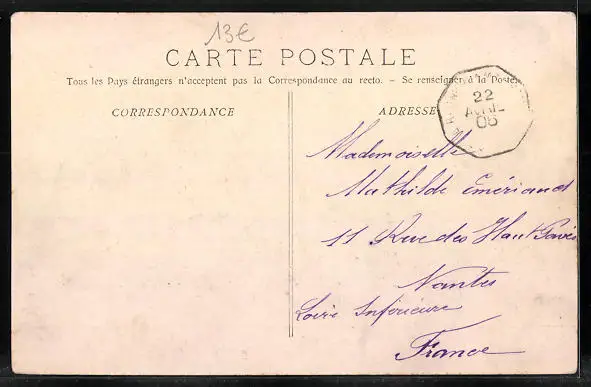 13€
CARTE POSTALE
Tous les Pays étrangers n'acceptent pas la Correspondance au recto. – Se renseigner à la Poste.
CORRESPONDANCE
ADRESSE
22
AVRIL
06
Mademoiselle
Mathilde Émériaud
11 Rue des Haut Pavés
Nantes
Loire Inférieure
France